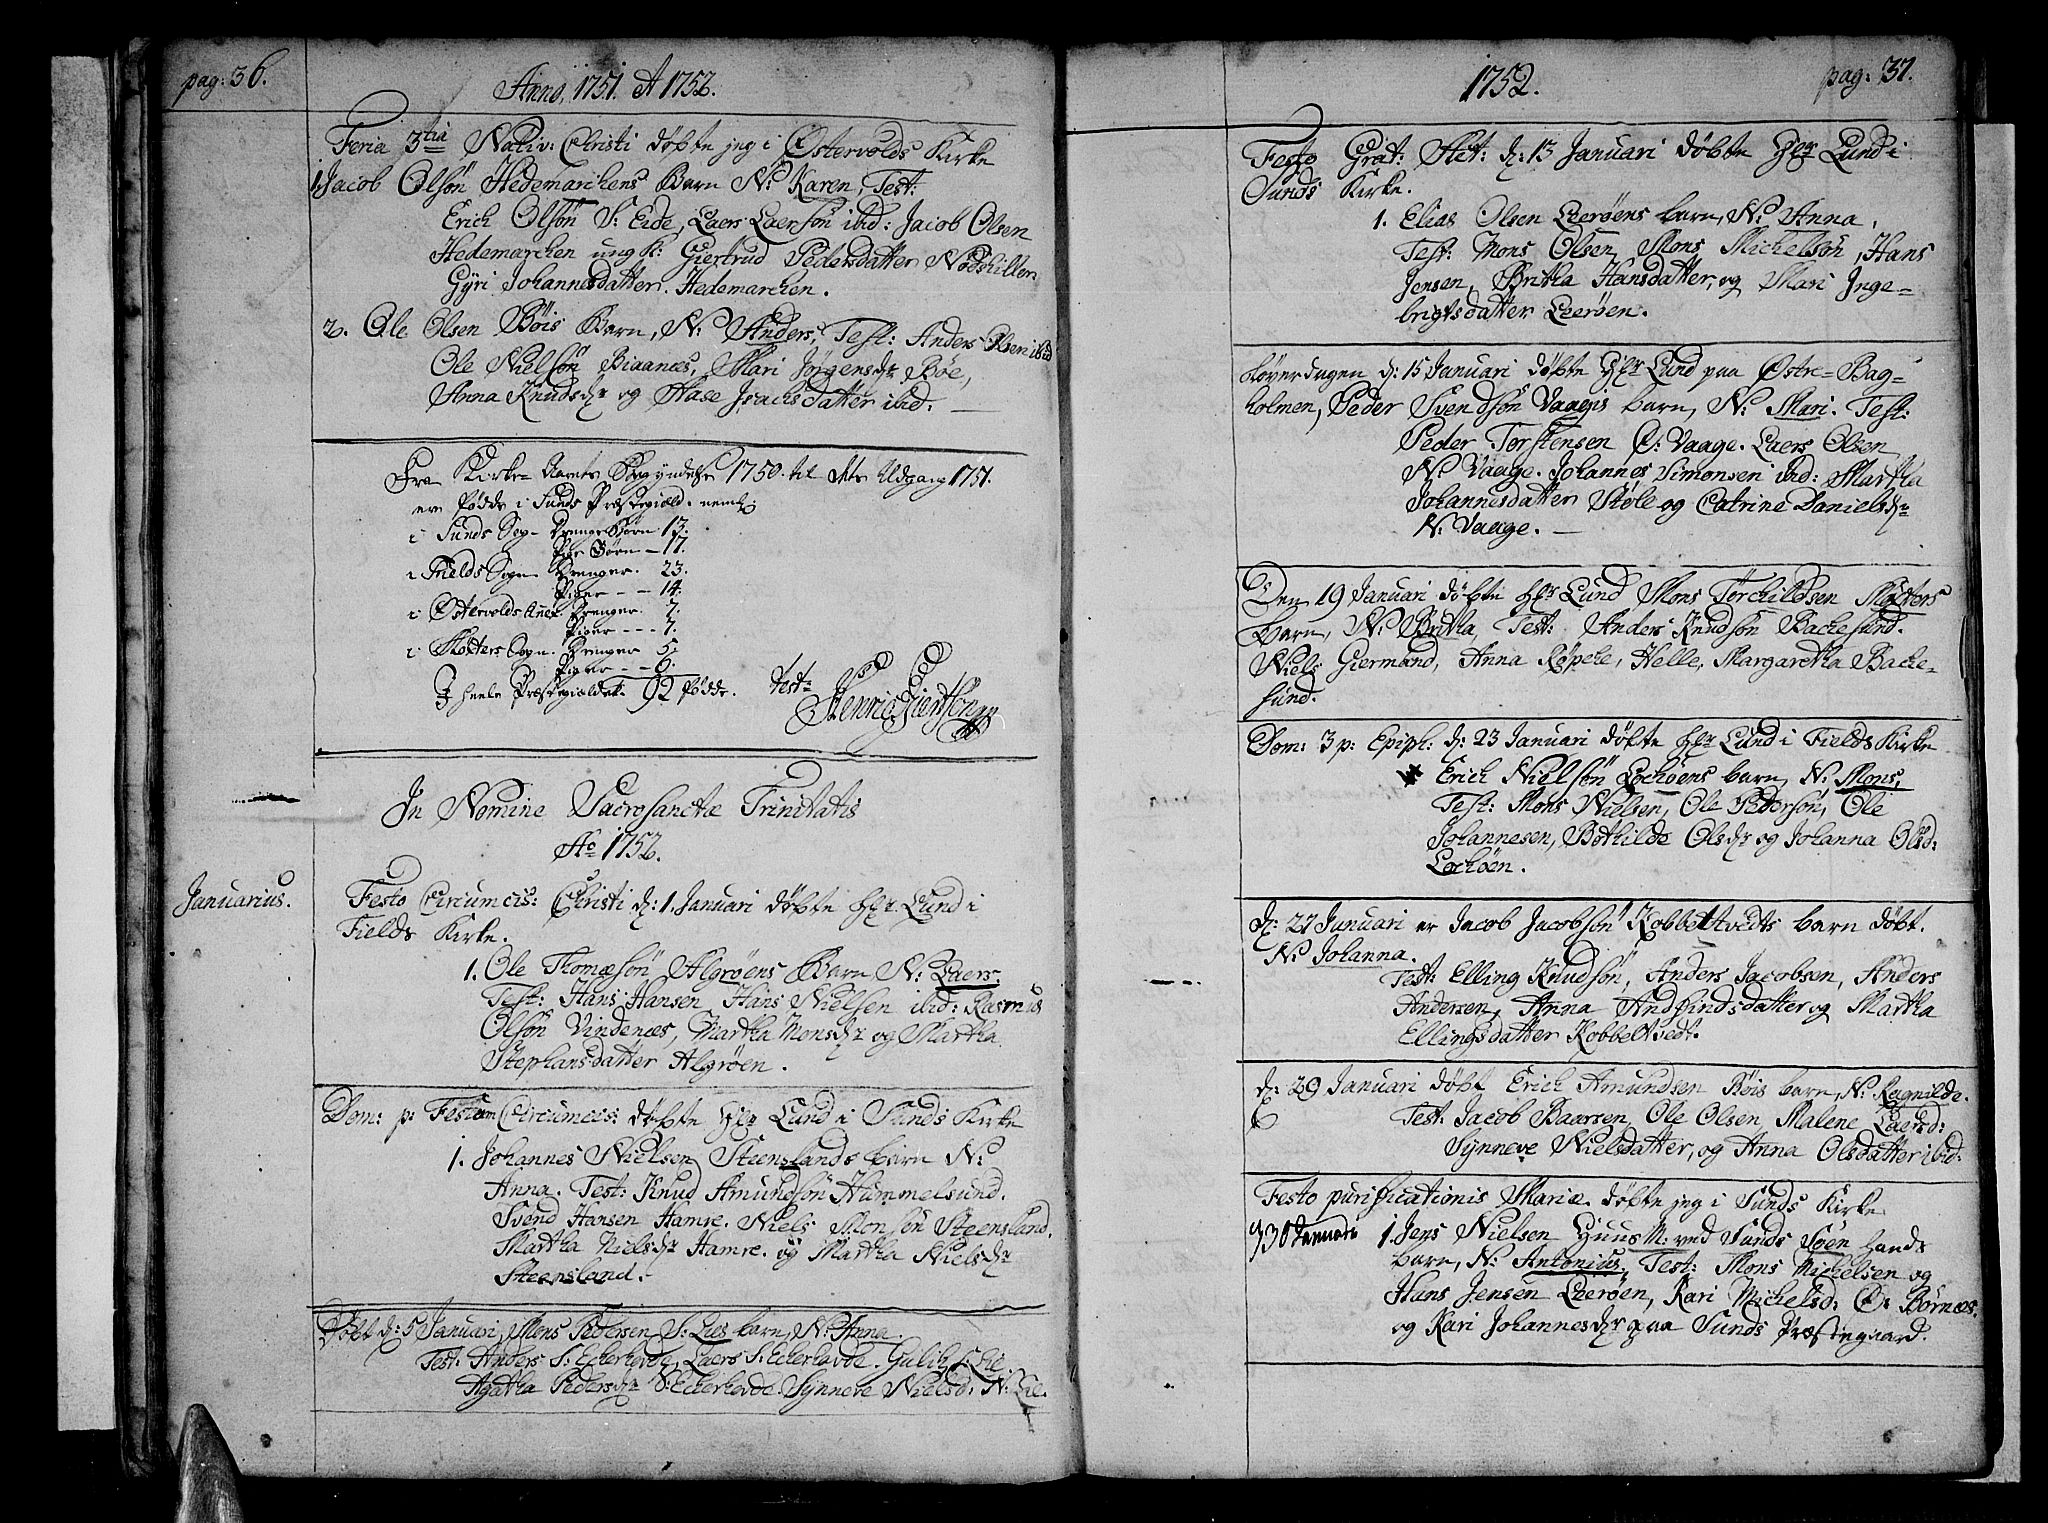 pag: 36.
Anno, 1751. A 1752.
Feria 3tia Nativ: Christi døbte jeg i Østervolds Kirke
1. Jacob Olsøn Hedemarchens Barn N: Karen, Test:
Erich Olsøn S: Eide, Laers Laersøn ibid: Jacob Olsen
Hedemarchen ung k: Giertrud Pedersdatter
Gyri Johannesdatter. Hedemarchen.
2. Ole Olsen Bøis Barn, N: Anders, Test: Anders Olsen ibid
Ole Nielsøn Biaanes, Mari Jørgensdr Bøe,
Anna Knudsdr og Aase Isachsdatter ibid.
Fra Kirke-Aarets Begyndelse 1750. til dets Udgang 1751.
ere fødde i Sunds Præstegiæld. nemlig
i Sunds Sog- Drenge Børn 13.
Pige Børn - 17.
i Fields Sogn Drenger. 23.
Piger - - 14.
i Østervolds Annex. Drenger. 7.
Piger - - - 7.
i Møxters Sogn. Drenger 5.
Piger - - 6.
I heele Præstegieldet. 92 fødde. test:
Henric Giertsøn
In Nomine Sacrosanctæ Trinitatis
Ao 1752.
Januarius.
Festo Circumcis: Christi d: 1. Januari døbte Hr Lund i
Fields Kirke.
1. Ole Thomæsøn Algrøens Barn N: Laers:
Test: Hans Hansen, Hans Nielsen ibid: Rasmus
Olsøn Vindenes, Martha Monsdr og Martha
Stephansdatter Algrøen.
Dom: p: Festum Circumcis: døbte Hr Lund i Sunds Kirke
1. Johannes Nielsen Steenslands barn N:
Anna. Test: Knud Amundsøn Hummelsund.
Svend Hansen Hamre. Niels Monsøn Steensland.
Martha Nielsdr Hamre. og Martha Nielsdr
Steensland.
Døbt d: 5 Januari, Mons Pedersen S: Lies barn, N: Anna.
Test: Anders S: Eckerhovde, Laers S: Eckerhovde. Gulich S: Lie.
Agatha Pedersdr S: Eckerhovde Synneve Nielsd: N: Lie.
1752.
pag: 37.
Festo Grat: Act: d: 13 Januari døbte Hr Lund i
Sunds Kirke.
1. Elias Olsen Leerøens barn, N: Anna,
Test: Mons Olsen, Mons Michelsøn, Hans
Jensen, Britha Hansdatter, og Mari Inge-
brigtsdatter Leerøen.
Løverdagen d: 15 Januari døbte Hr Lund paa Østre-Bag-
holmen, Peder Svendsøn Vaagis barn, N: Mari. Test:
Peder Torstensen Ø: Vaage. Laers Olsen
N: Vaage. Johannes Simonsen ibid: Martha
Johannesdatter Støle og Catrine Danielsdr
N: Vaage.
Den 19 Januari døbte Hr Lund Mons Torchildsen Møxters
barn, N: Britha, Test: Anders Knudsøn Bachesund.
Niels Giermand, Anna Røpche, Helle, Margaretha Bache-
sund.
Dom: 3 p: Epiph: d: 23 Januari døbte Hr Lund i Fields Kirke
Erich Nielsøn Lochøens barn, N: Mons,
Test: Mons Nielsen, Ole Pedersøn, Ole
Johannesen, Bothilde Olsdr og Johanna Olsd:
Lochøen.
d: 27 Januari er Jacob Jacobsøn Kobbeltvedts barn døbt.
N: Johanna.
Test: Elling Knudsøn, Anders Jacobsen, Anders
Andersen, Anna Andfindsdatter og Martha
Ellingsdatter Kobbeltvedt.
d: 29 Januari døbt Erich Amundsen Bøis barn, N: Ragnilde.
Test: Jacob Baarsen, Ole Olsen, Malene Laersd:
Synneve Nielsdatter, og Anna Olsdatter ibid:
Festo purificationis Mariæ døbte jeg i Sunds Kirke
d 30 Januari
1. Jens Nielsen Huusm: ved Sunds Søen hands
barn, N: Antonius. Test: Mons Michelsen og
Hans Jensen Leerøen, Kari Michelsd: Ø: Børnes.
og Kari Johannesdr paa Sunds Præstegaard.